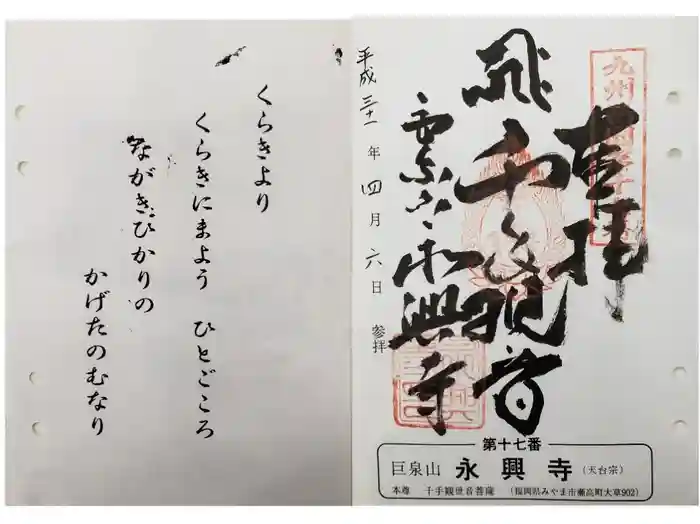 くらきより
くらきにまよう ひとごころ
ながきひかりの
かげたのむなり
奉拝
飛 千手観音
永興寺
平成三十一年四月六日 参拝
第十七番
巨泉山 永興寺 (天台宗)
本尊 千手観世音菩薩 (福岡県みやま市瀬高町大草902)